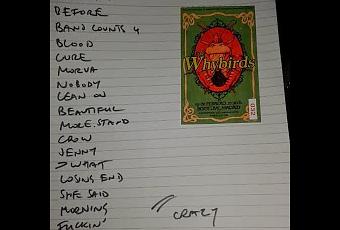 BEFORE
BAND COUNTS 4
BLOOD
CURE
MORVA
NOBODY
LEAN ON
BEAUTIFUL
MORE.STAND
CROW
JENNY
WHAT
LOSING END
SHE SAID
MORNING
FUCKIN'
CRAZY
Whybirds